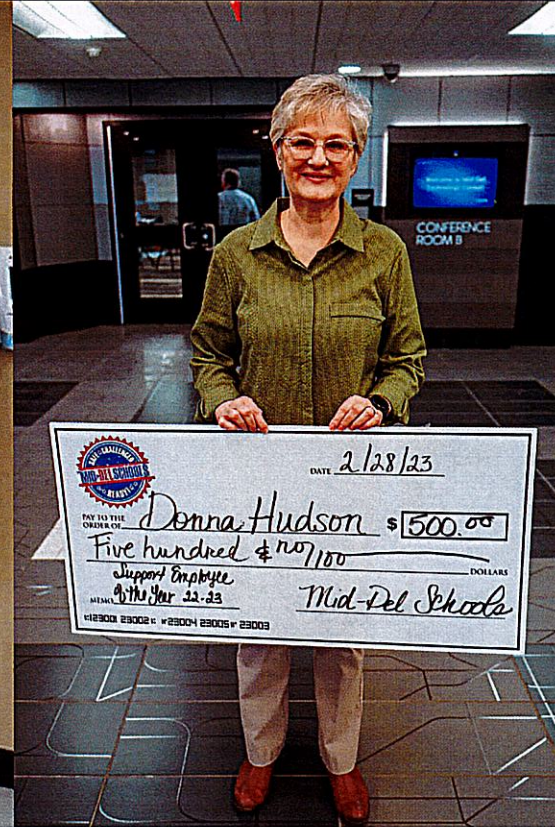 CONFERENCE
ROOM B
MID-DEL SCHOOLS
DATE 2/28/23
PAY TO THE
ORDER OF Donna Hudson $ 500.00
Five hundred & no/100 DOLLARS
Support Employee
MEMO of the Year 22-23 Mid-Del Schools
⑆123001 23002⑆ ⑈23004 23005⑈ 23003